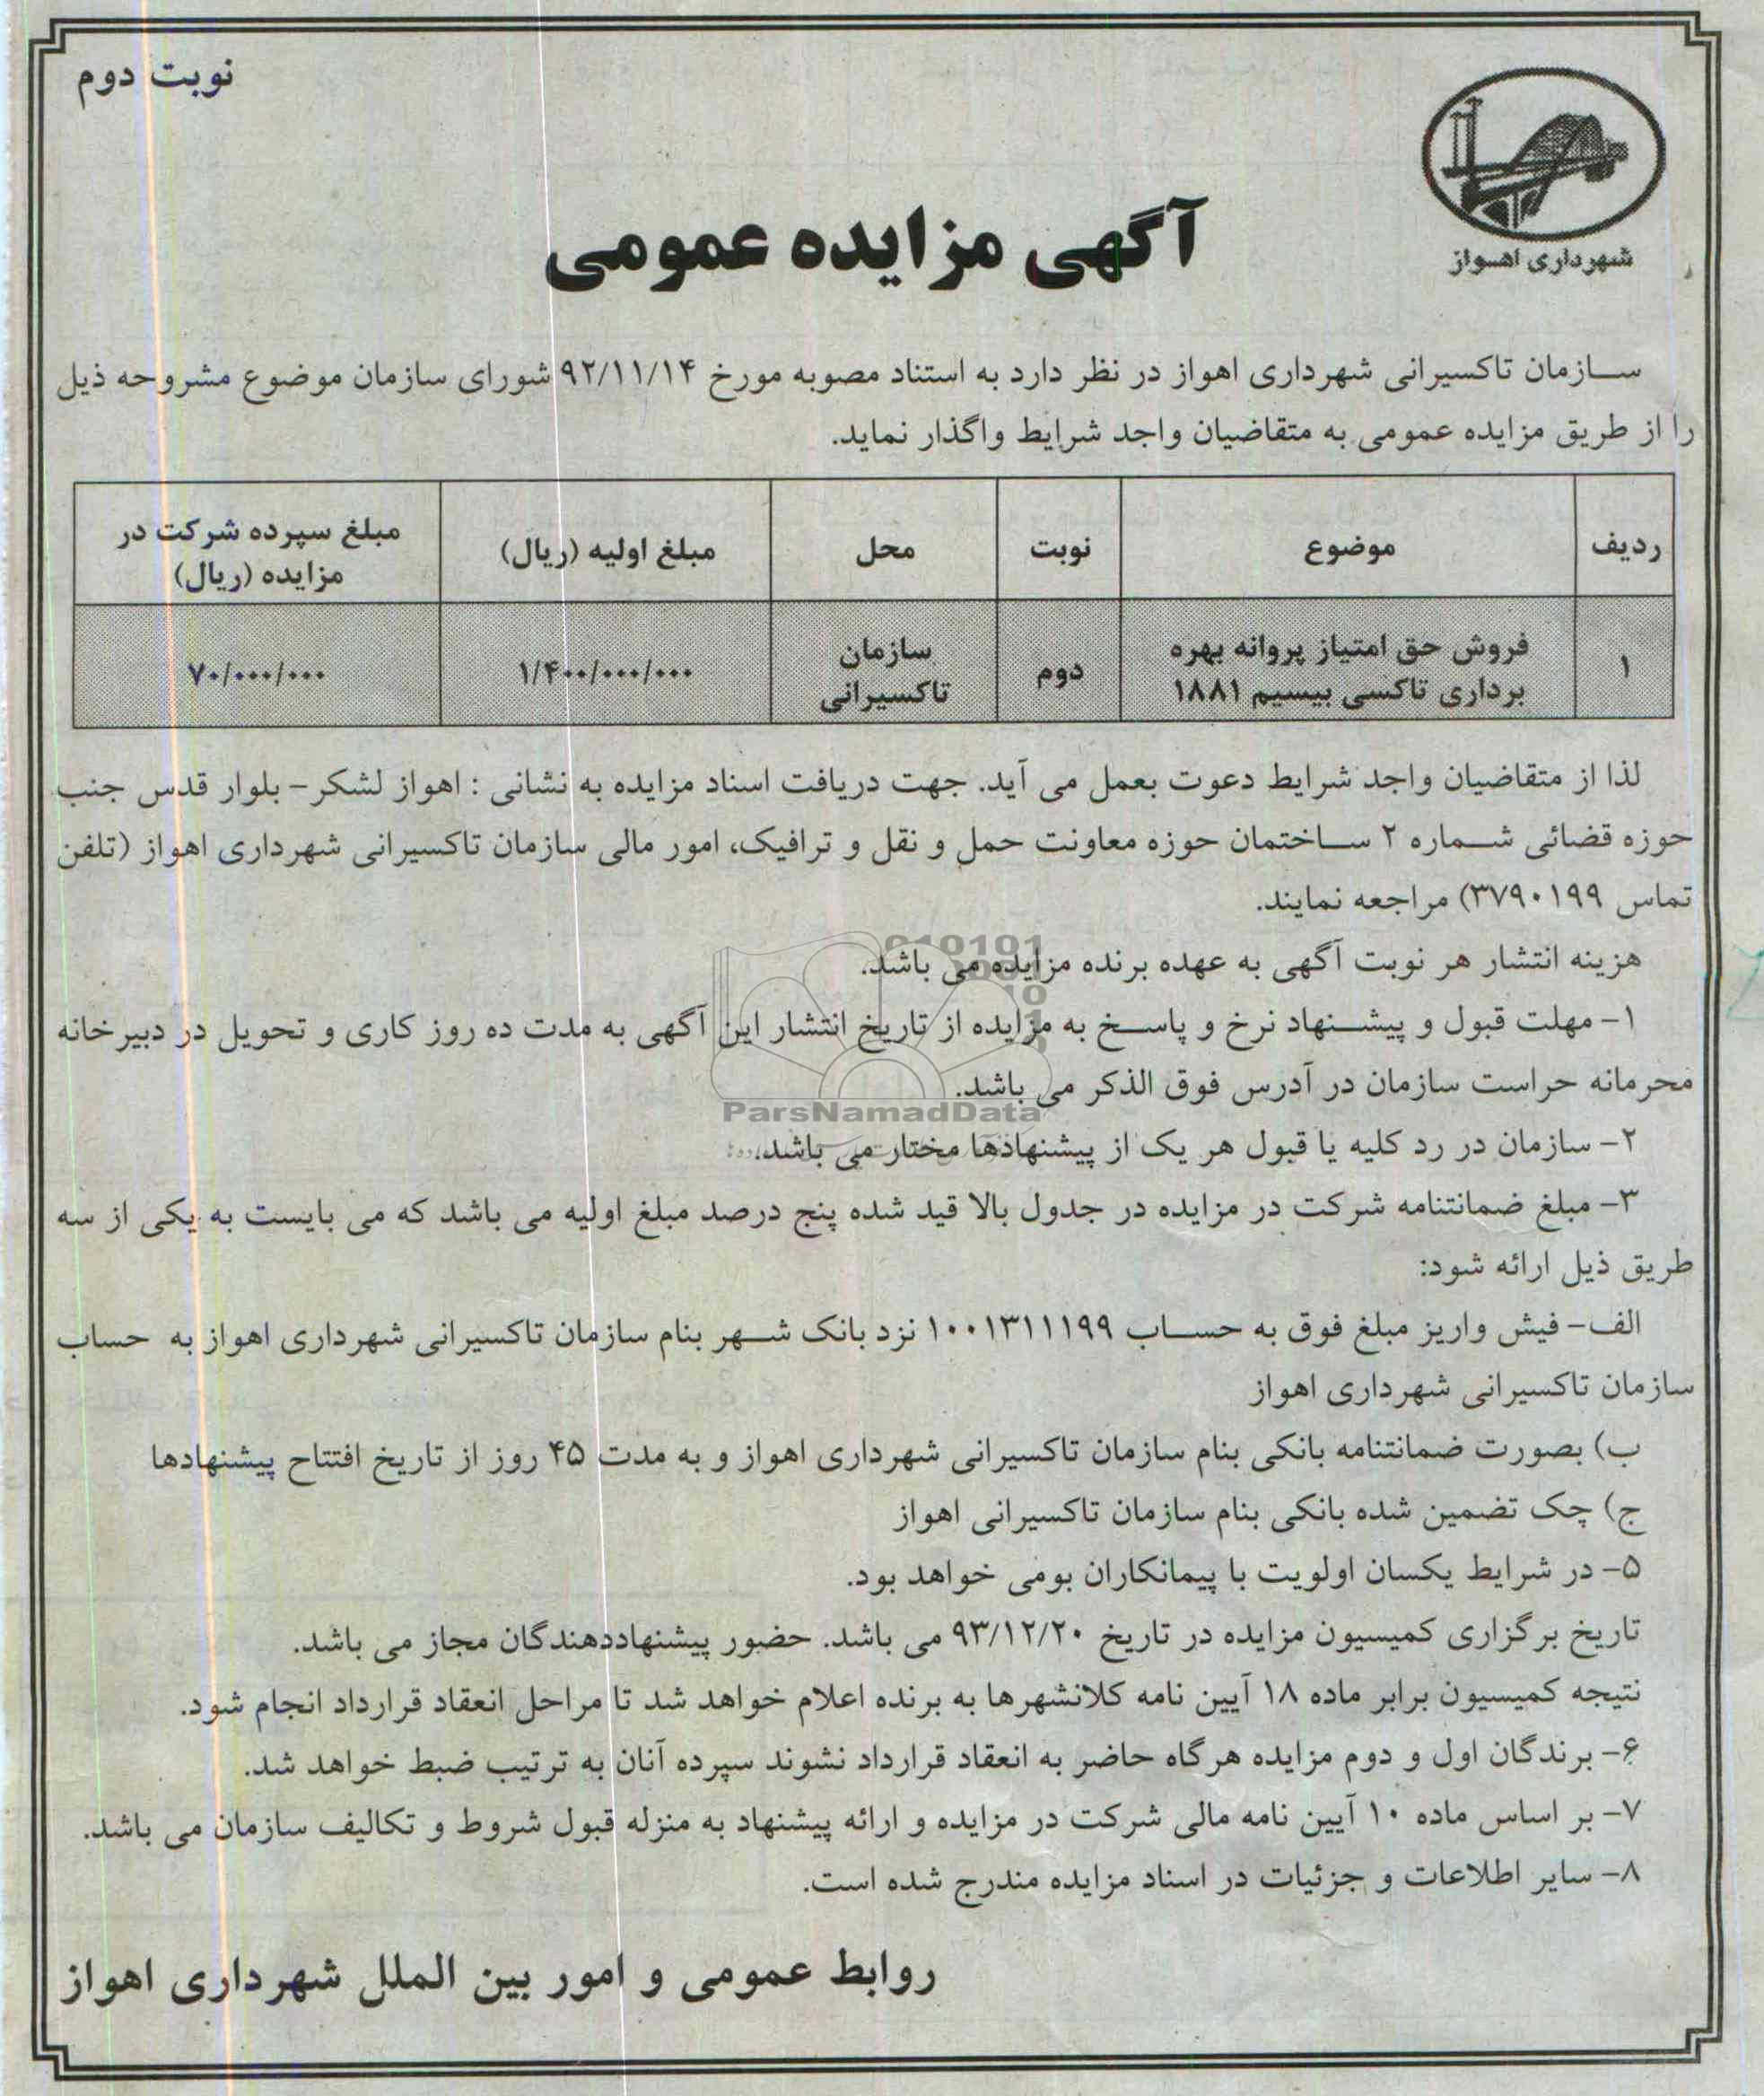 نوبت دوم
شهرداری اهـواز
آگهی مزایده عمومی
سـازمان تاکسیرانی شهرداری اهواز در نظر دارد به استناد مصوبه مورخ ۹۲/۱۱/۱۴ شورای سازمان موضوع مشروحه ذیل
را از طریق مزایده عمومی به متقاضیان واجد شرایط واگذار نماید.
ردیف | موضوع | نوبت | محل | مبلغ اولیه (ریال) | مبلغ سپرده شرکت در مزایده (ریال)
۱ | فروش حق امتیاز پروانه بهره برداری تاکسی بیسیم ۱۸۸۱ | دوم | سازمان تاکسیرانی | ۱/۴۰۰/۰۰۰/۰۰۰ | ۷۰/۰۰۰/۰۰۰
لذا از متقاضیان واجد شرایط دعوت بعمل می آید. جهت دریافت اسناد مزایده به نشانی : اهواز لشکر – بلوار قدس جنب
حوزه قضائی شـماره ۲ سـاختمان حوزه معاونت حمل و نقل و ترافیک، امور مالی سازمان تاکسیرانی شهرداری اهواز (تلفن
تماس ۳۷۹۰۱۹۹) مراجعه نمایند.
هزینه انتشار هر نوبت آگهی به عهده برنده مزایده می باشد.
۱– مهلت قبول و پیشـنهاد نرخ و پاسـخ به مزایده از تاریخ انتشار این آگهی به مدت ده روز کاری و تحویل در دبیرخانه
محرمانه حراست سازمان در آدرس فوق الذکر می باشد.
ParsNamadData
۲– سازمان در رد کلیه یا قبول هر یک از پیشنهادها مختار می باشد.
۳– مبلغ ضمانتنامه شرکت در مزایده در جدول بالا قید شده پنج درصد مبلغ اولیه می باشد که می بایست به یکی از سه
طریق ذیل ارائه شود:
الف– فیش واریز مبلغ فوق به حسـاب ۱۰۰۱۳۱۱۱۹۹ نزد بانک شـهر بنام سازمان تاکسیرانی شهرداری اهواز به حساب
سازمان تاکسیرانی شهرداری اهواز
ب) بصورت ضمانتنامه بانکی بنام سازمان تاکسیرانی شهرداری اهواز و به مدت ۴۵ روز از تاریخ افتتاح پیشنهادها
ج) چک تضمین شده بانکی بنام سازمان تاکسیرانی اهواز
۵– در شرایط یکسان اولویت با پیمانکاران بومی خواهد بود.
تاریخ برگزاری کمیسیون مزایده در تاریخ ۹۳/۱۲/۲۰ می باشد. حضور پیشنهاددهندگان مجاز می باشد.
نتیجه کمیسیون برابر ماده ۱۸ آیین نامه کلانشهرها به برنده اعلام خواهد شد تا مراحل انعقاد قرارداد انجام شود.
۶– برندگان اول و دوم مزایده هرگاه حاضر به انعقاد قرارداد نشوند سپرده آنان به ترتیب ضبط خواهد شد.
۷– بر اساس ماده ۱۰ آیین نامه مالی شرکت در مزایده و ارائه پیشنهاد به منزله قبول شروط و تکالیف سازمان می باشد.
۸– سایر اطلاعات و جزئیات در اسناد مزایده مندرج شده است.
روابط عمومی و امور بین الملل شهرداری اهواز